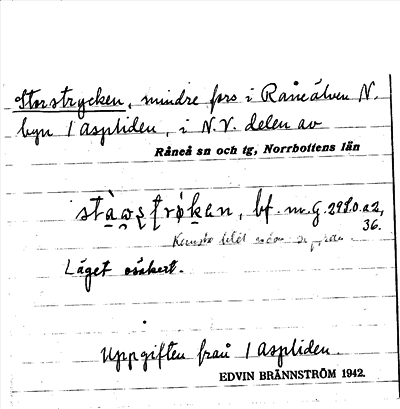 Storstrycken, mindre fors i Råneälven N.
byn / Aspliden, i N.V. delen av
Råneå sn och tg, Norrbottens län
bf. m. G. 2980. a2,
36.
Kanske
Läget osäkert.
Uppgiften från / Aspliden.
EDVIN BRÄNNSTRÖM 1942.